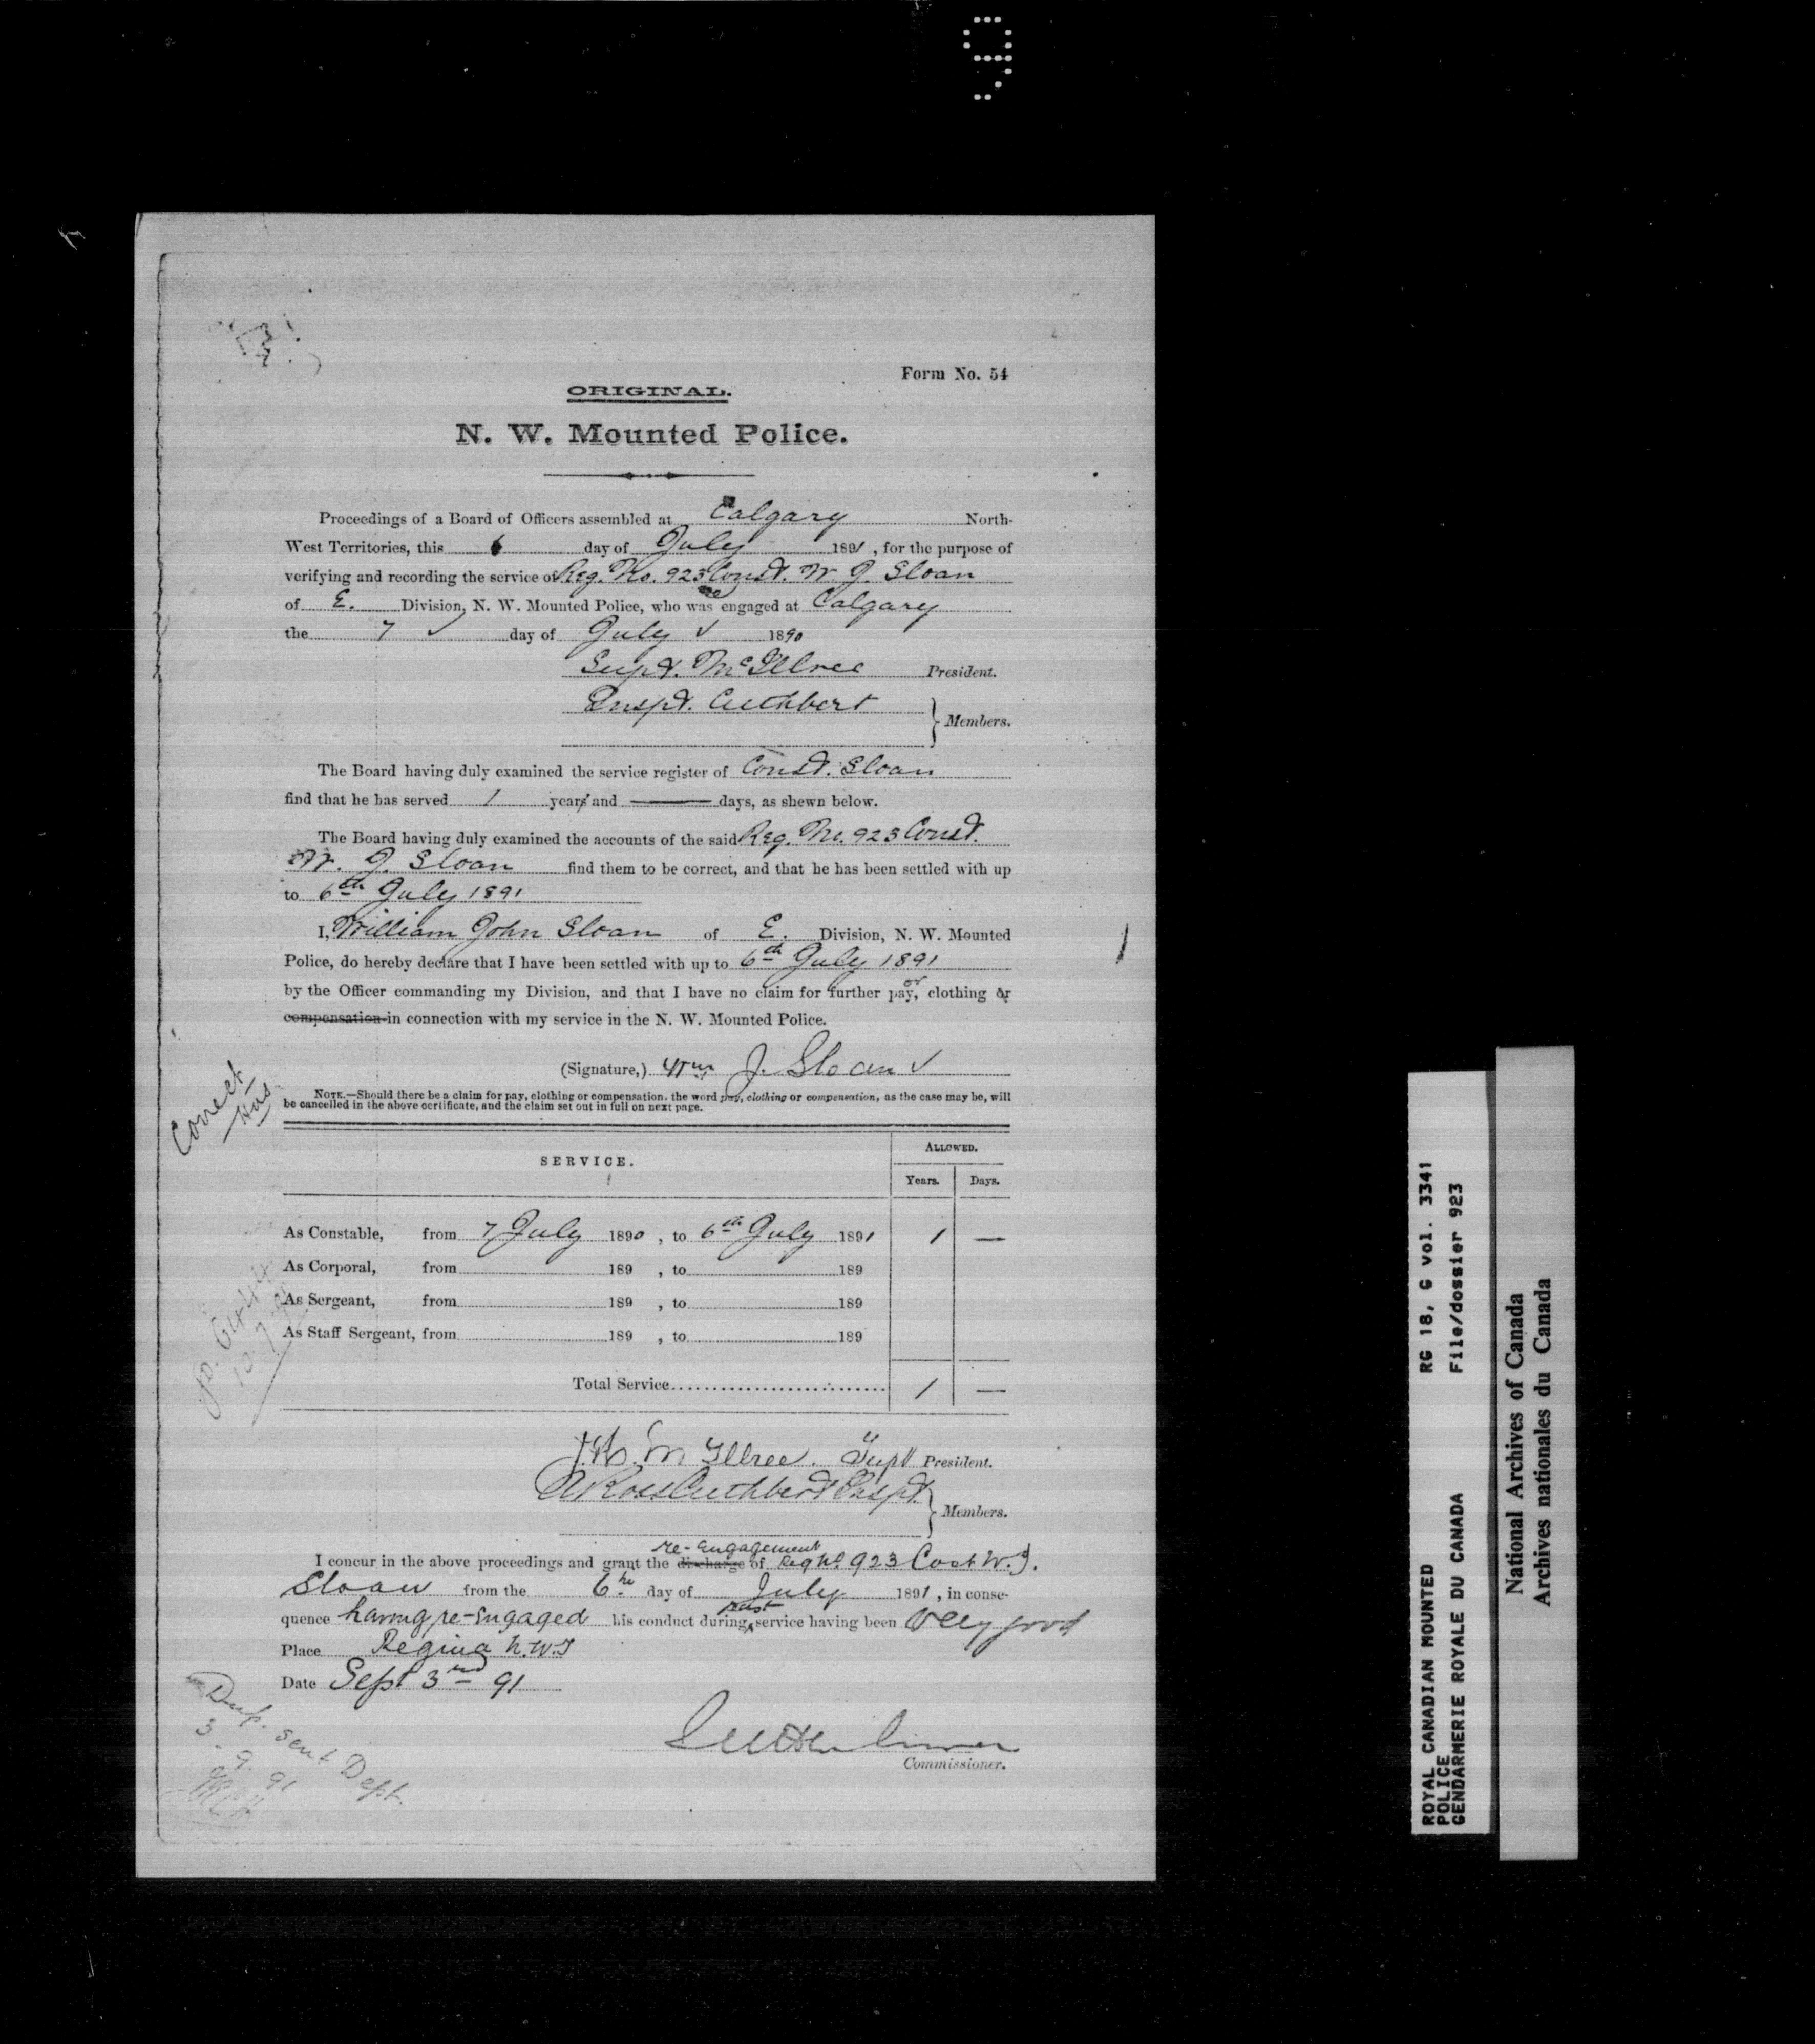 Form No. 54
ORIGINAL.
N. W. Mounted Police.
Proceedings of a Board of Officers assembled at Calgary North-
West Territories, this 6 day of July 1891, for the purpose of
verifying and recording the service of Reg. No. 923 Const. W. J. Sloan
re
of E. Division, N. W. Mounted Police, who was engaged at Calgary
the 7 ✓ day of July ✓ 1890
Supt. McIllree President.
Inspt. Cuthbert
Members.
The Board having duly examined the service register of Const. Sloan
find that he has served 1 years and — days, as shewn below.
The Board having duly examined the accounts of the said Reg. No. 923 Const.
W. J. Sloan find them to be correct, and that he has been settled with up
to 6th July 1891
I, William John Sloan of E. Division, N. W. Mounted
Police, do hereby declare that I have been settled with up to 6th July 1891
or
by the Officer commanding my Division, and that I have no claim for further pay, clothing or
compensation in connection with my service in the N. W. Mounted Police.
(Signature,) Wm J. Sloan ✓
NOTE.—Should there be a claim for pay, clothing or compensation. the word pay, clothing or compensation, as the case may be, will
be cancelled in the above certificate, and the claim set out in full on next page.
Correct
SERVICE. ALLOWED.
Years. Days.
As Constable, from 7 July 1890, to 6th July 1891 1 —
As Corporal, from 189 , to 189
As Sergeant, from 189 , to 189
As Staff Sergeant, from 189 , to 189
Total Service 1 —
McIllree. Supt President.
A Ross Cuthbert Inspt.
Members.
re-engagement
I concur in the above proceedings and grant the discharge of Reg No 923 Const W. J.
Sloan from the 6th day of July 1891, in conse-
past
quence having re-engaged his conduct during service having been Very good
Place Regina N.W.T
Date Sept 3rd 91
Commissioner.
Dup. sent Dept.
3-9-91
RG 18, G vol. 3341
File/dossier 923
ROYAL CANADIAN MOUNTED
POLICE
GENDARMERIE ROYALE DU CANADA
National Archives of Canada
Archives nationales du Canada